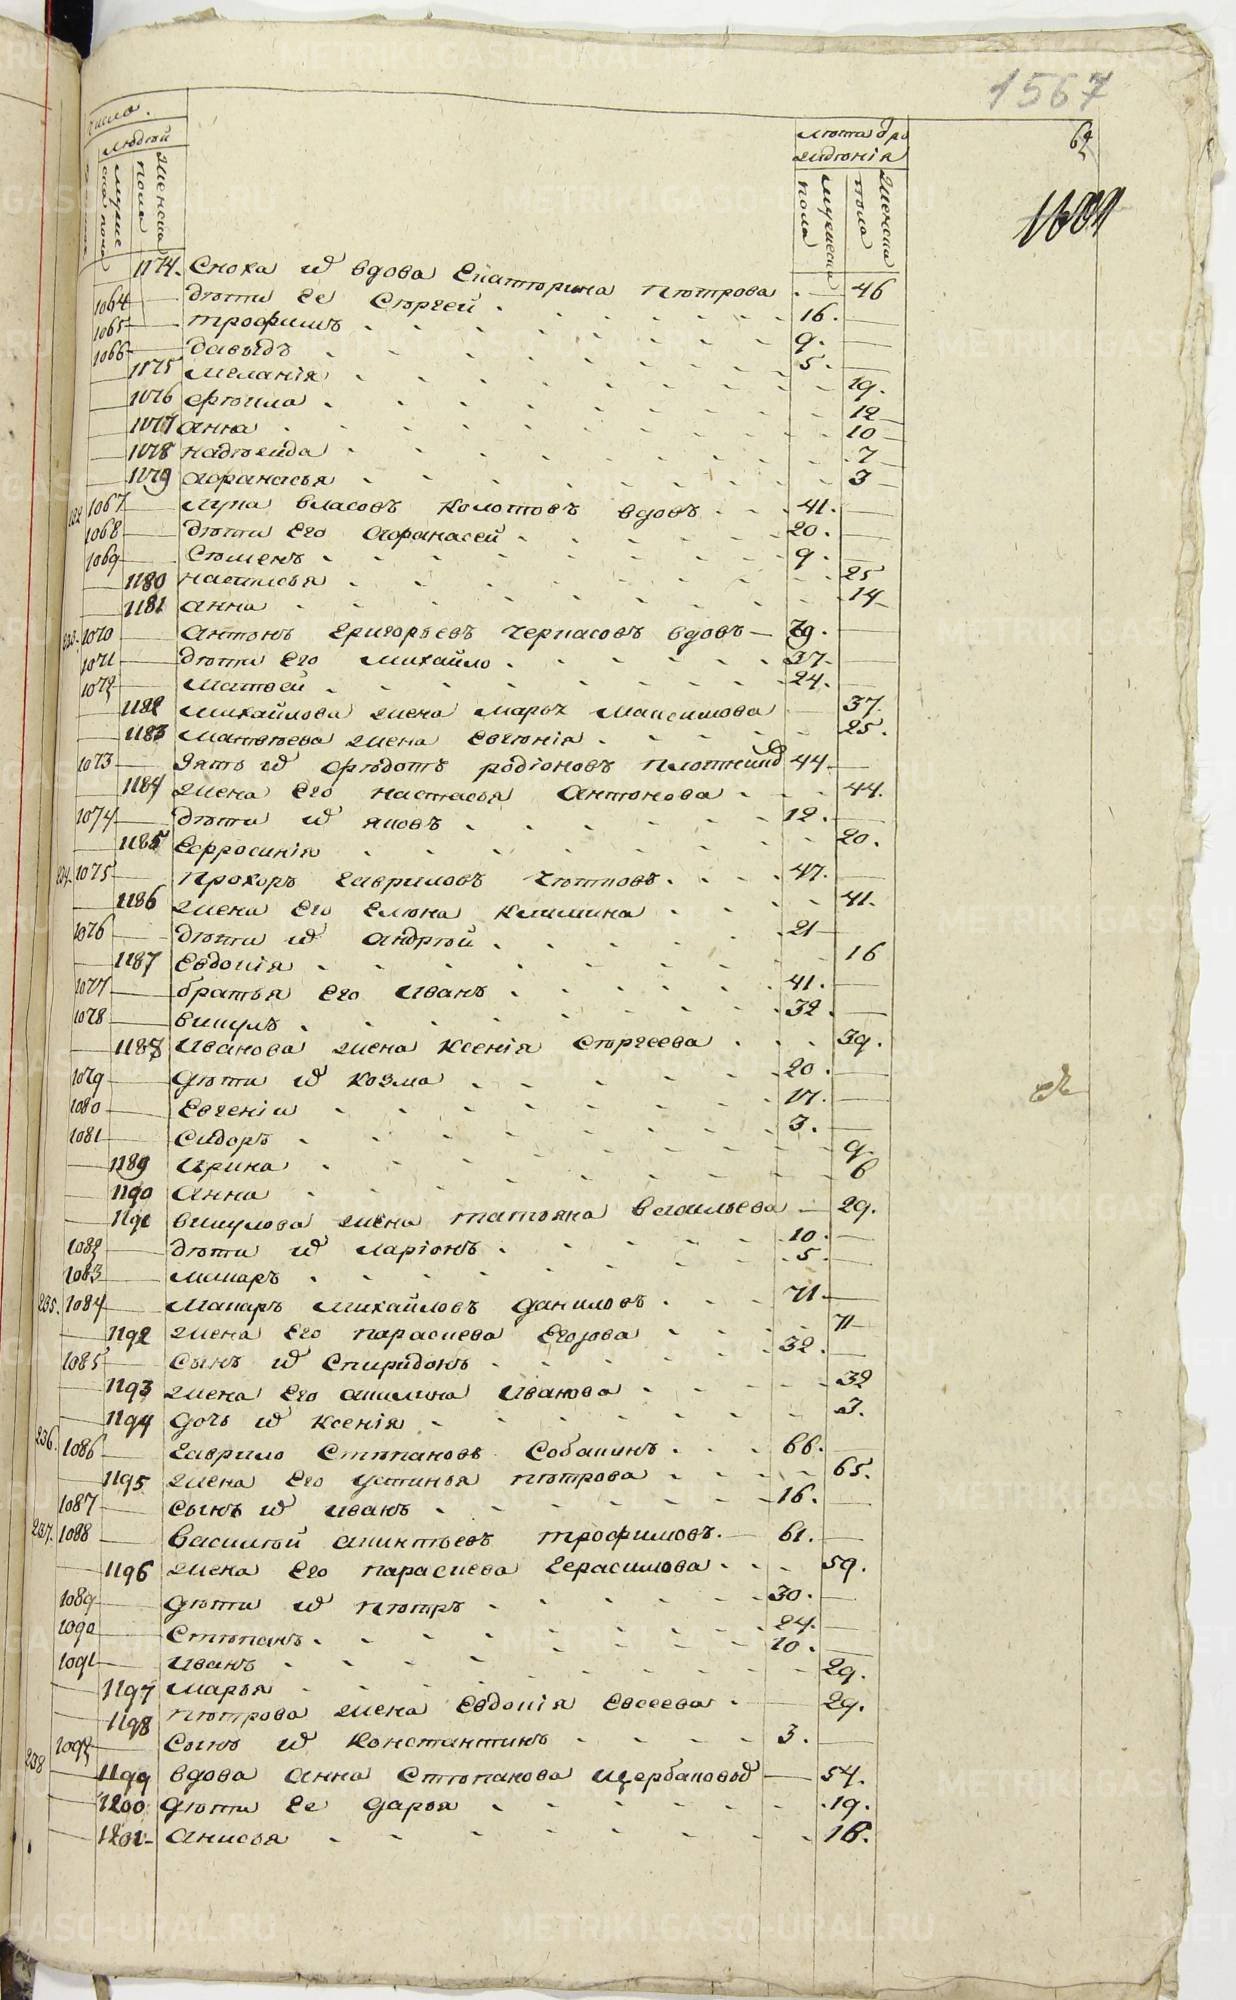 1567
64
число.
людей
мужеска пола
женска пола
лета рождения
мужеска пола
женска пола
1174. Сноха и вдова Екатерина Петрова . — 46
1064 — дети Ее Сергей . 16. —
1065 — Трофимъ . 9. —
1066 — Давыдъ . 5. —
— 1175 Меланія . 19.
— 1176 Фекла . 12
— 1177 Анна . 10
— 1178 Надежда . 7
— 1179 Афанасья . 3
232 1067 — Лупа Власовъ Колотовъ вдовъ . 41. —
1068 — дети Его Афанасей . 20. —
1069 — Семенъ . 9. —
— 1180 Настасья . 25
— 1181 Анна . 14
233. 1070 — Антонъ Григорьевъ Черпасовъ вдовъ — 79. —
1071 — дети Его Михайло . 37. —
1072 — Матвей . 24. —
— 1182 Михайлова жена Марья Максимова — 37.
— 1183 Матвеева жена Евгенія . 25.
1073 — Зять и Федотъ Родіоновъ 44. —
— 1184 жена Его Настасья Антонова . 44.
1074 — дети и Яковъ . 12. —
— 1185 Ефросинія . 20.
234. 1075 — Прохоръ Гавриловъ . 47. —
— 1186 жена Его Елена Климина . 41.
1076 — дети и Андрей . 21 —
— 1187 Евдокія . 16
1077 — братья Его Иванъ . 41. —
1078 — Викулъ . 32. —
— 1188 Иванова жена Ксенія Сергеева . 39.
1079 — дети и Козма . 20. —
1080 — Евгеній . 17. —
1081 — Сидоръ . 3. —
— 1189 Ирина . 9.
— 1190 Анна . 6
— 1191 Викулова жена Татьяна Васильева — 29.
1082 — дети и Ларіонъ . 10. —
1083 — Макаръ . 5. —
235. 1084 — Макаръ Михайловъ Даниловъ . 71 —
— 1192 жена Его Параскева Егорова . 71
1085 — Сынъ и Спиридонъ . 32. —
— 1193 жена Его Акилина Иванова . 32
— 1194 дочь и Ксенія . 3.
236. 1086 — Гаврило Степановъ Собакинъ . 66. —
— 1195 жена Его Устинья Петрова . 65.
1087 — Сынъ и Иванъ . 16. —
237. 1088 — Василей Акинтьевъ Трофимовъ. — 61. —
— 1196 жена Его Параскева Герасимова . 59.
1089 — дети и Петръ . 30. —
1090 — Степанъ . 24. —
1091 — Иванъ . 10. —
— 1197 Марья . 29.
— 1198 Петрова жена Евдокія Евсеева . — 29.
1092 — Сынъ и Константинъ . 3. —
238 — 1199 вдова Анна Степанова Щербаковыхъ — 54.
— 1200 дети Ее Дарья . 19.
— 1201 Анисья . 18.